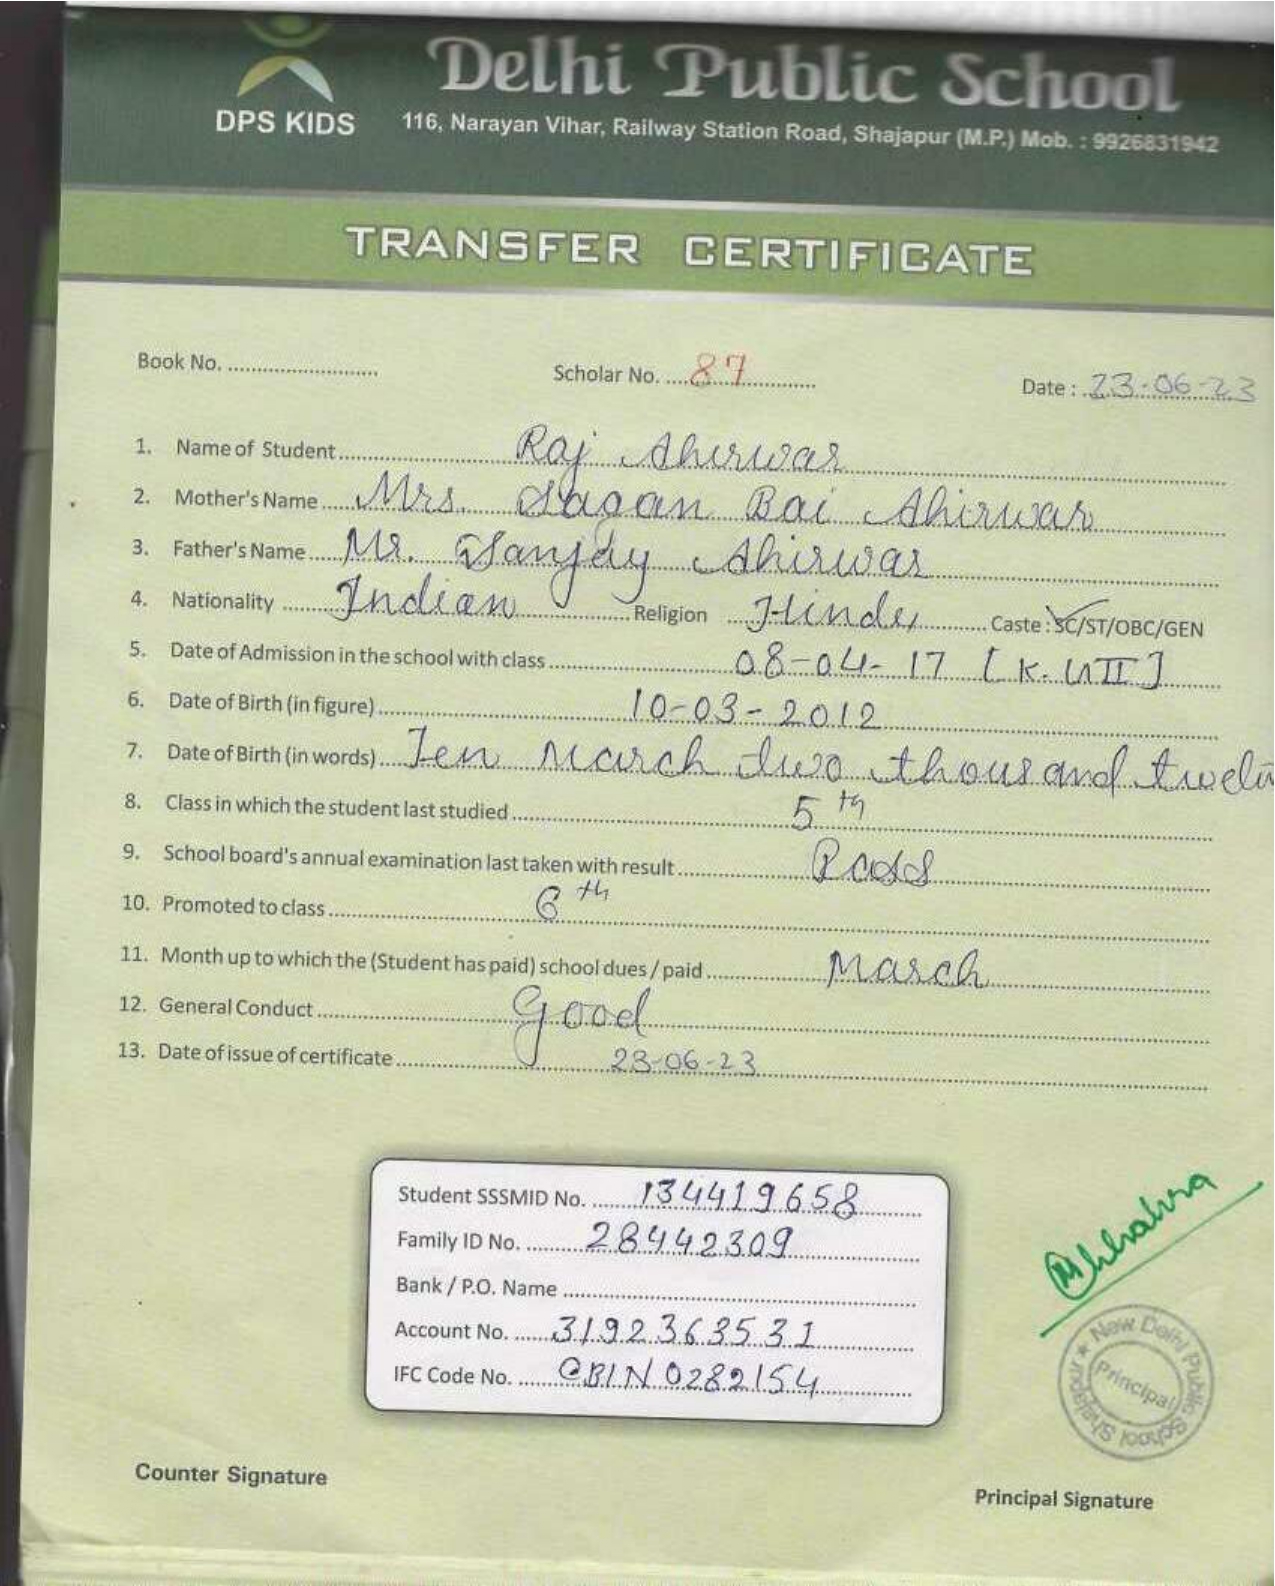 Delhi Public School
DPS KIDS
116, Narayan Vihar, Railway Station Road, Shajapur (M.P.) Mob. : 9926831942
TRANSFER CERTIFICATE
Book No. ............ Scholar No. ....87............ Date : .23-06-23
1. Name of Student ............ Raj Ahirwar ............
2. Mother's Name .... Mrs. Sagan Bai Ahirwar
3. Father's Name .... Mr. Sanjay Ahirwar ............
4. Nationality ....... Indian ............ Religion .... Hindu ............ Caste : SC/ST/OBC/GEN
5. Date of Admission in the school with class ............ 08-04-17 [K.G II]
6. Date of Birth (in figure) ............ 10-03-2012 ............
7. Date of Birth (in words) .... Ten March two thousand twelv
8. Class in which the student last studied ............ 5th ............
9. School board's annual examination last taken with result ............ Pass ............
10. Promoted to class ............ 6th ............
11. Month up to which the (Student has paid) school dues / paid ............ March ............
12. General Conduct ............ Good ............
13. Date of issue of certificate ............ 23-06-23 ............
Student SSSMID No. ....... 134419658 .......
Family ID No. ....... 28442309 .......
Bank / P.O. Name ............
Account No. ....... 3192363531 .......
IFC Code No. ....... CBIN0282154 .......
New Delhi Public School Shajapur
Principal
Counter Signature
Principal Signature